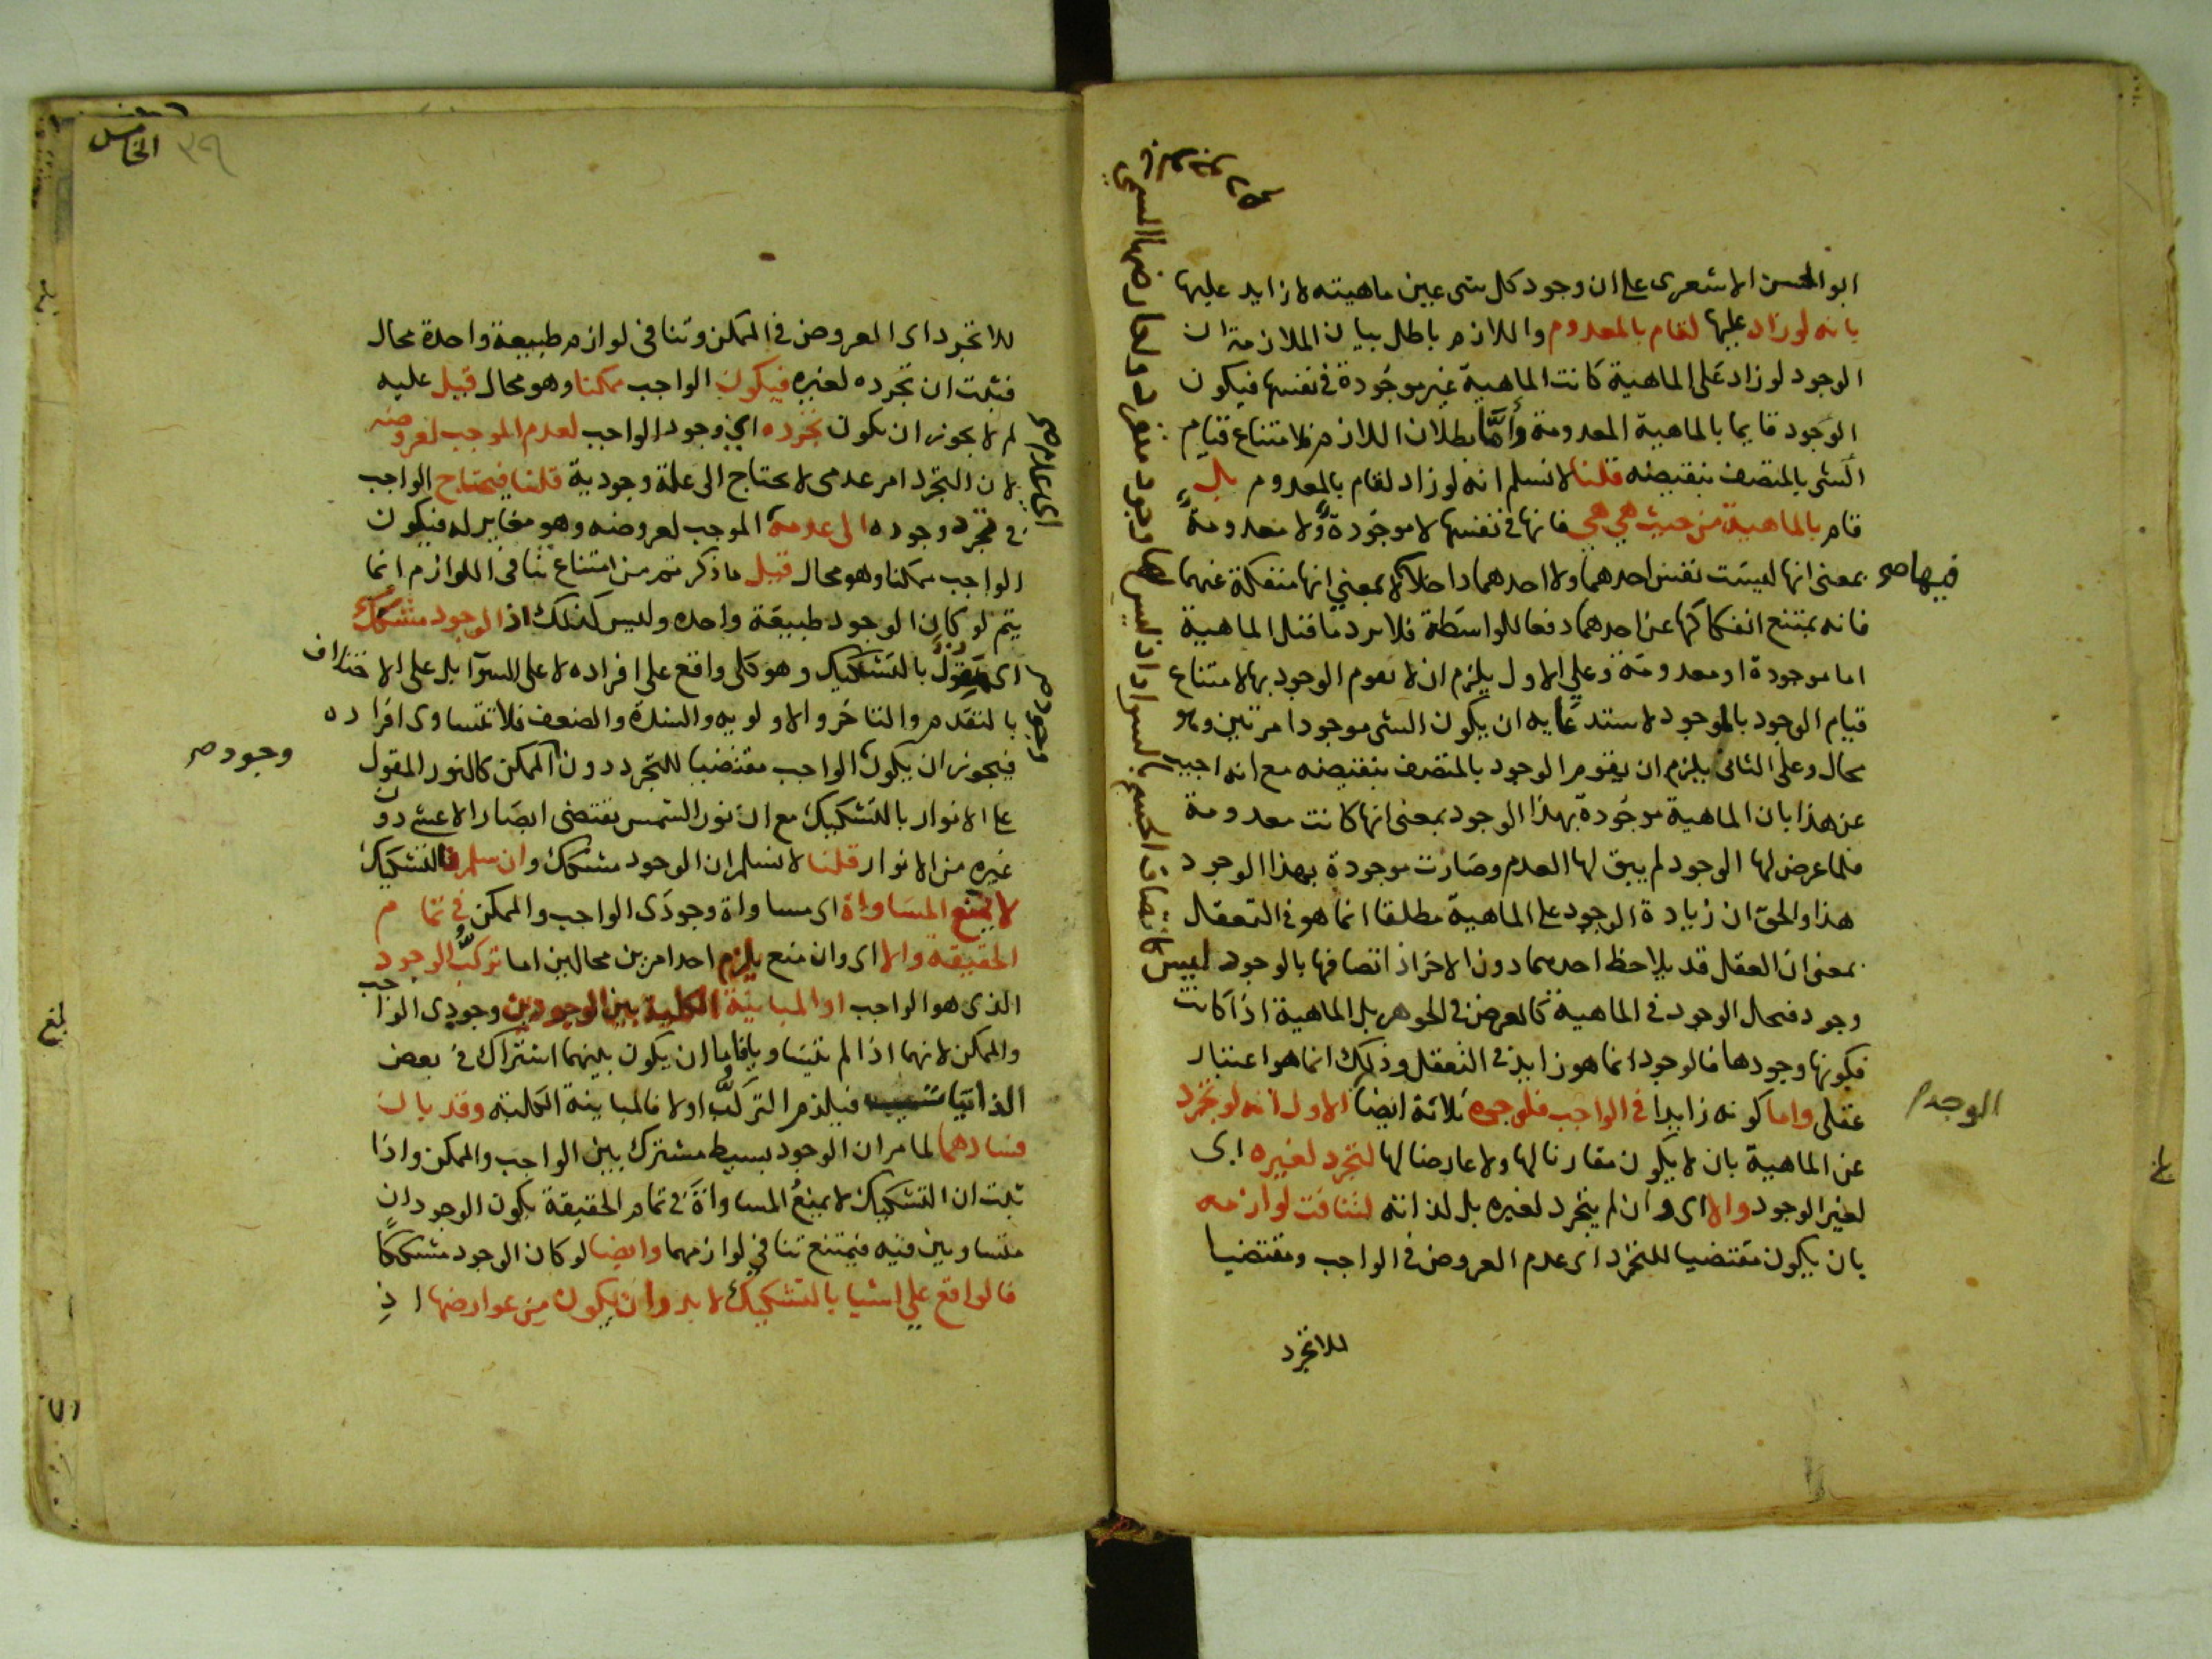 ابو الحسن الاشعرى على ان وجود كل شى عين ماهيته لا زايد عليها
بانه لو زاد عليها لقام بالمعدوم واللازم باطل بيان الملازمة ان
الوجود لو زاد على الماهية كانت الماهية غير موجودة في نفسها فيكون
الوجود قايما بالماهية المعدومة وأما بطلان اللازم فلامتناع قيام
الشى بالمتصف بنقيضه قلنا لا نسلم انه لو زاد لقام بالمعدوم بل
قام بالماهية من حيث هي هي فانها في نفسها لا موجودة ولا معدومة
بمعنى انها ليست نفس احدهما ولا احدهما داخلا لا بمعنى انها منفكة عنهما
فيها صح
فانه يمتنع انفكاكها عن احدهما دفعا للواسطة فلا يرد ما قيل الماهية
اما موجودة او معدومة وعلى الاول يلزم ان لا يقوم الوجود بها لامتناع
قيام الوجود بالموجود لاستدعايه ان يكون الشى موجودا مرتين وهو
محال وعلى الثانى يلزم ان يقوم الوجود بالمتصف بنقيضه مع انه اجيب
عن هذا بان الماهية موجودة بهذا الوجود بمعنى انها كانت معدومة
فلما عرض لها الوجود لم يبق لها العدم وصارت موجودة بهذا الوجود
هذا والحق ان زيادة الوجود على الماهية مطلقا انما هو في التعقل
بمعنى ان العقل قد يلاحظ احدهما دون الاخر اذ اتصافها بالوجود ليس
كاتصاف الجسم بالسواد اذ ليس لها وجود منفرد ولعارضها المسمى
وجود فحال الوجود في الماهية كالعرض في الجوهر بل الماهية اذا كانت
فكونها وجودها فالوجود انما هو زايد في التعقل وذلك انما هو اعتبار
عقلى واما كونه زايدا في الواجب فلوجوه ثلاثة ايضا الاول انه لو تجرد
الوجود
عن الماهية بان لا يكون مقارنا لها ولا عارضا لها لتجرد لغيره اى
لغير الوجود والا اى وان لم يتجرد لغيره بل لذاته لتنافت لوازمه
بان يكون مقتضيا للتجرد اى عدم العروض في الواجب ومقتضيا
للاتجرد
الخامس
٣٩
للاتجرد اى العروض في الممكن وتنافى لوازم طبيعة واحدة محال
فثبت ان تجرده لغيره فيكون الواجب ممكنا وهو محال قيل عليه
لم لا يجوز ان يكون تجرده اي وجود الواجب لعدم الموجب لعروضه
لان التجرد امر عدمى لا يحتاج الى علة وجودية قلنا فيحتاج الواجب
في تجرد وجوده الى عدمه الموجب لعروضه وهو مغاير له فيكون
اى عدم صح
الواجب ممكنا وهو محال قيل ما ذكرتم من امتناع تنافى اللوازم انما
يتم لو كان الوجود طبيعة واحده وليس كذلك اذ الوجود مشكك
اى مقول بالتشكيك وهو كلى واقع على افراده لا على السوآ بل على الاختلاف
بالتقدم والتاخر والاولويه والشدة والضعف فلا تتساوى افراده
فيجوز ان يكون الواجب مقتضيا للتجرد دون الممكن كالنور المقول
وجود صح
وجود صح
على الانوار بالتشكيك مع ان نور الشمس يقتضى ابصار الاعشى دون
غيره من الانوار قلنا لا نسلم ان الوجود مشكك وان سلم فالتشكيك
لا يمنع المساواة اى مساواة وجودى الواجب والممكن في تمام
الحقيقة والا اى وان منع يلزم احد امرين محالين اما تركب الوجود
الذى هو الواجب او المباينة الكلية بين الوجودين وجودى الواجب
والممكن لانهما اذا لم يتساويا فاما ان يكون بينهما اشتراك في بعض
الذاتيات فيلزم التركب اولا فالمباينة الكلية وقد بان
فسادهما لما مر ان الوجود بسيط مشترك بين الواجب والممكن واذا
ثبت ان التشكيك لا يمنع المساواة في تمام الحقيقة يكون الوجودان
متساويين فيه فيمتنع تنافي لوازمهما وايضا لو كان الوجود مشككا
فالواقع على اشيا بالتشكيك لا بد وان يكون من عوارضها اذ